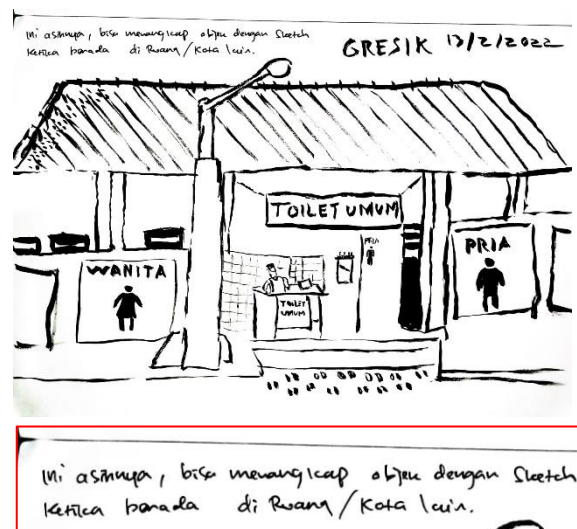 ini asiknya, bisa menangkap objek dengan Sketch
ketika berada di Ruang/Kota lain.
GRESIK 13/2/2022
TOILET UMUM
PRIA
PRIA
WANITA
TOILET
UMUM
ini asiknya, bisa menangkap objek dengan Sketch
ketika berada di Ruang/Kota lain.